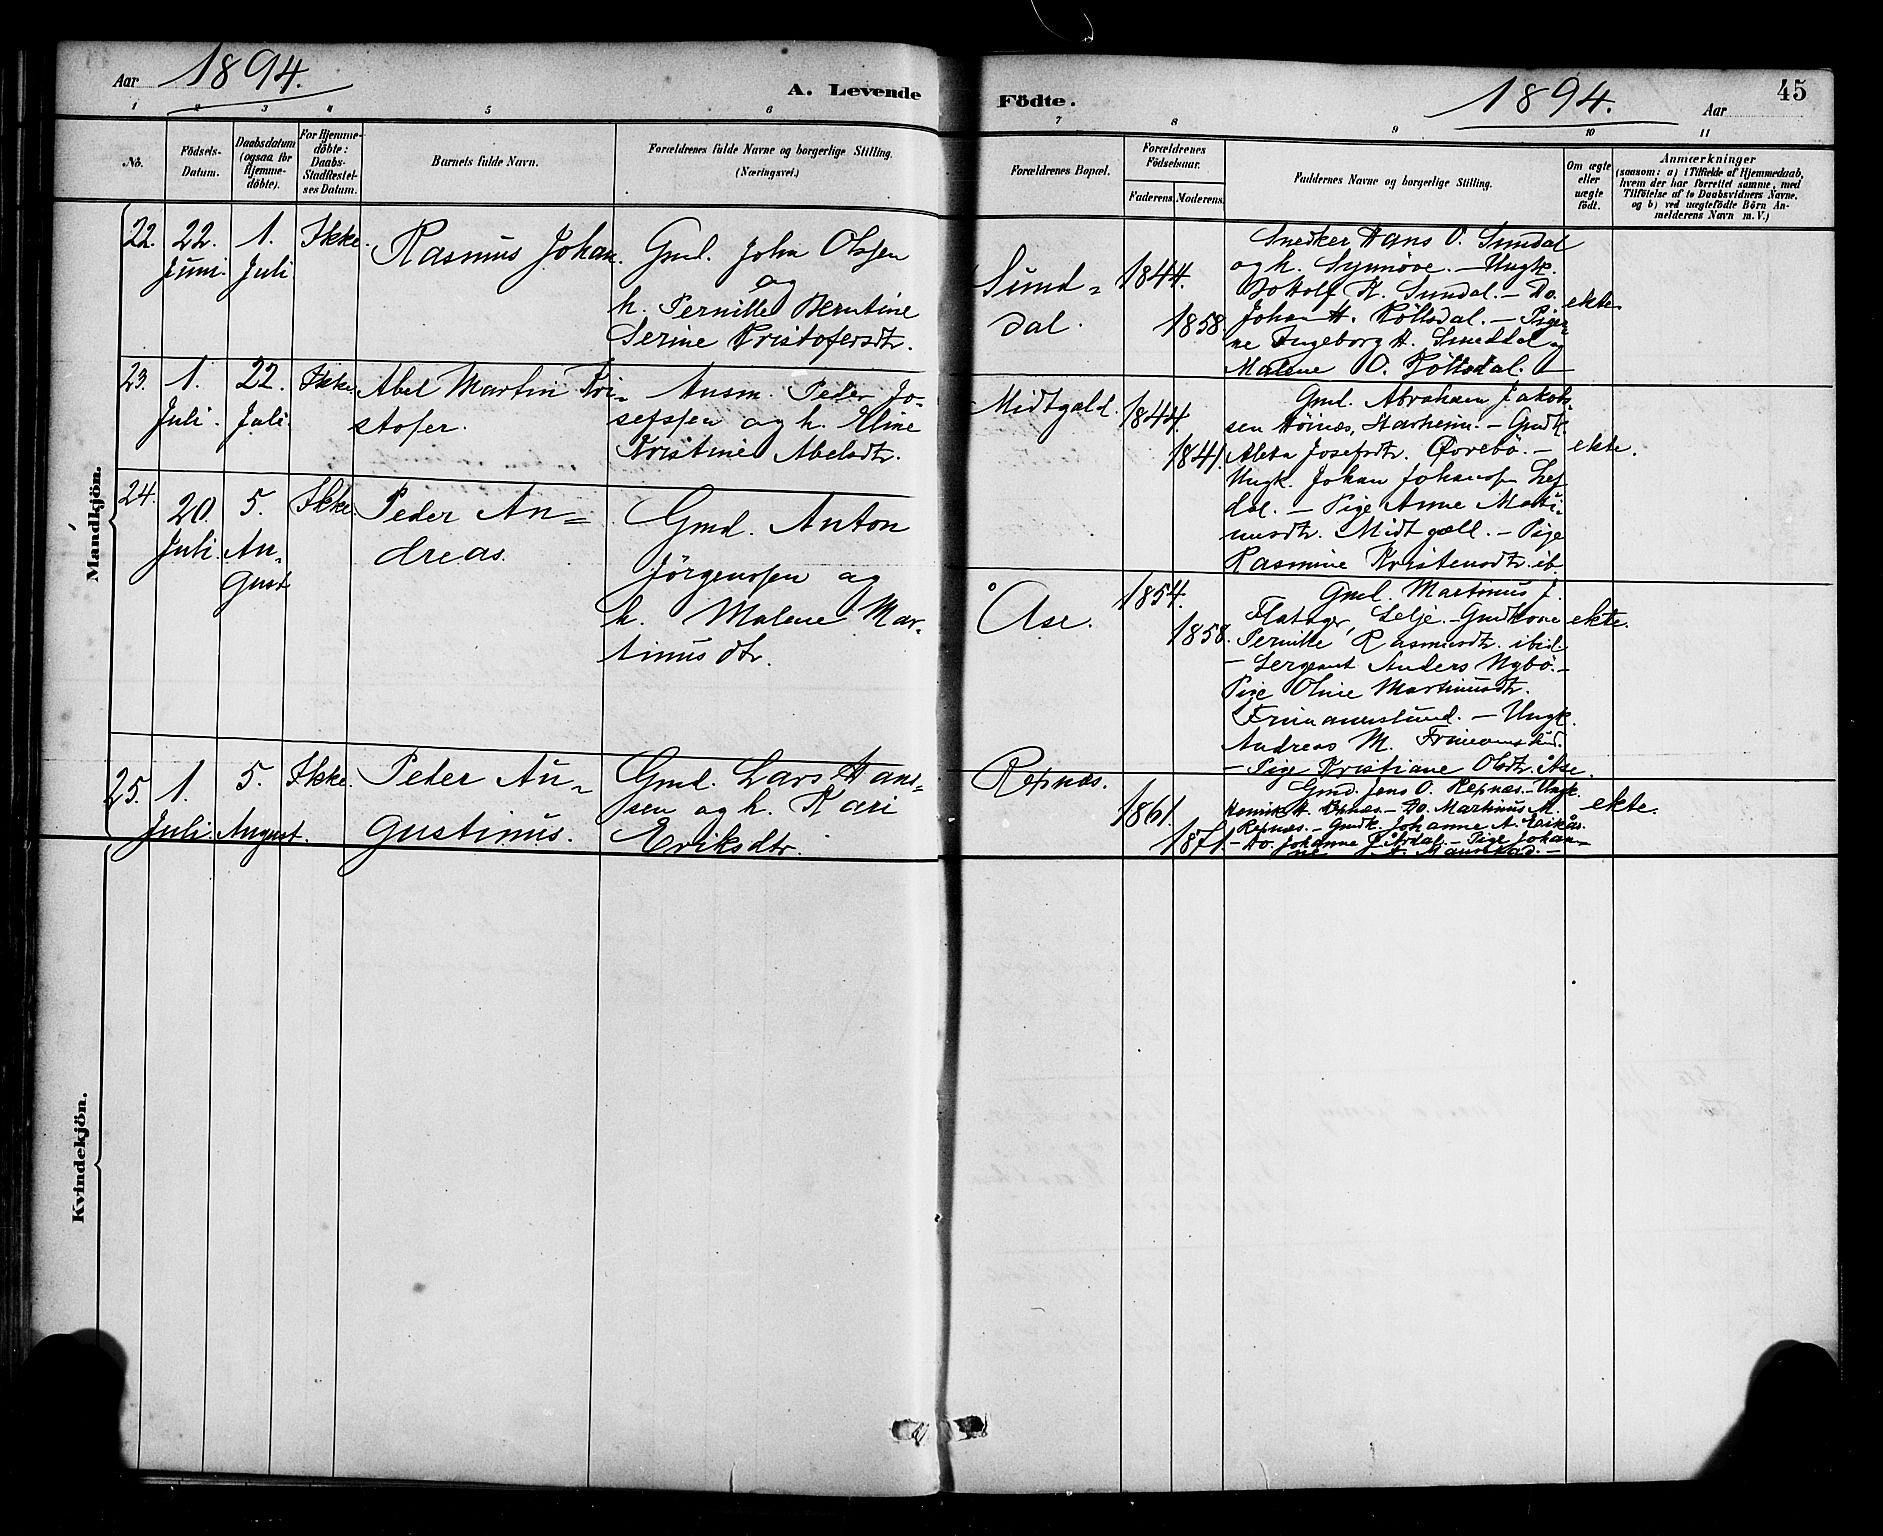 Aar 1894. A. Levende
Födte. 1894. Aar 45
1 2 3 4 5 6
7 8 9 10 11
No.
Födsels-
Datum.
Daabsdatum
(ogsaa for
Hjemme-
döbte).
For Hjemme-
döbte:
Daabs-
Stadfæstel-
ses Datum.
Barnets fulde Navn.
Forældrenes fulde Navne og borgerlige Stilling.
(Næringsvei.)
Forældrenes Bopæl.
Forældrenes
Födselsaar.
Faderens. Moderens.
Faddernes Navne og borgerlige Stilling.
Om ægte
eller
uægte
födt.
Anmærkninger
(saasom: a) i Tilfælde af Hjemmedaab,
hvem der har forrettet samme, med
Tilföielse af to Daabsvidners Navne,
og b) ved uægtefödte Börn An-
melderens Navn m. V.)
Mandkjön.
22. 22. Juni. 1. Juli Ikke.
Rasmus Johan.
Gmd. John Olsen
og
h. Pernille Berntine
Serine Kristofersdtr.
Sund-
dal.
1844.
1858.
Snedker Hans O. Sundal
og h. Synnöve. – Ungk.
K. Sundal. – Do.
Johan H. Röttsdal. – Piger-
ne Ingeborg H. Smeddal og
Malene O. Röttsdal. –
ekte.
23. 1. Juli. 22. Juli. Ikke.
Abel Martin Kri-
stofer.
Ausm. Peder Jo-
sefssen og h. Eline
Kristine Abelsdtr.
Midtgald.
1844.
1841.
Gmd. Abraham Jakob-
sen Hörnes, Starheim. – Gmdk.
Aleta Josefsdtr. Övrebö. –
Ungk. Johan Johansen Lef-
dal. – Pige Anne Marti-
nusdtr. Midtgall. – Pige
Rasmine Kristensdtr. ib.
ekte.
24. 20. Juli. 5. Au-
gust Ikke.
Peder An-
dreas.
Gmd. Anton
Jörgensen og
h. Malene Mar-
tinusdtr.
Åse.
1854.
1858.
Gmd. Martinus J.
Flatager, Selje. – Gmdkone
Pernille Rasmusdtr. ibid.
– Sergeant Anders Nybö. –
Pige Oline Martinusdtr.
Frimannslund. – Ungk.
Andreas M. Frimannslund.
– Pige Kristiane Olsdtr. Åse.
ekte.
25. 1. Juli. 5. August. Ikke.
Peder Au-
gustinus.
Gmd. Lars Han-
sen og h. Kari
Eriksdtr.
Refsnes.
1861.
1871.
Gmd. Jens O. Refsnes. – Ungk.
Henrik H. Refsnes. – Do. Martinus M.
Refsnes. – Gmdk. Johanne A. Eikås.
– Do. Johanne J. Årdal. – Pige Johan-
ne A. Maurstad. –
ekte.
Kvindekjön.